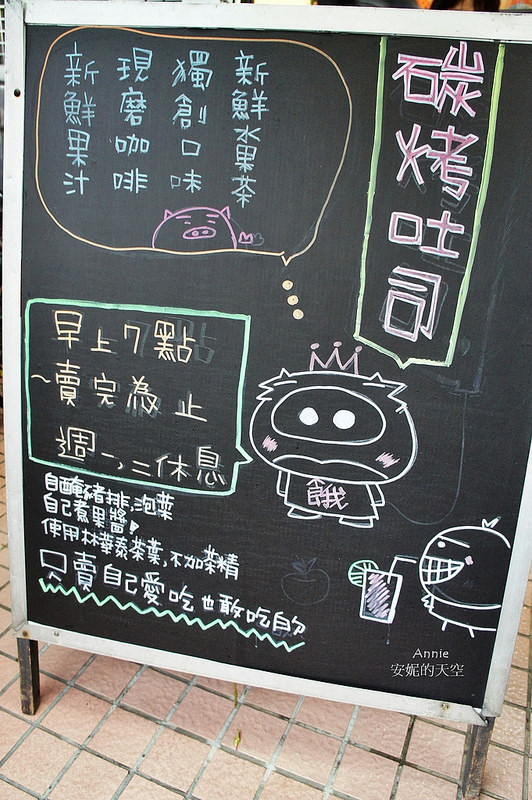 碳烤吐司
新鮮水果茶
獨創口味
現磨咖啡
新鮮果汁
早上7點
~賣完為止
週一、二休息
餓
自醃豬排,泡菜
自己煮果醬
使用林華泰茶葉,不加茶精
只賣自己愛吃也敢吃的
Annie
安妮的天空